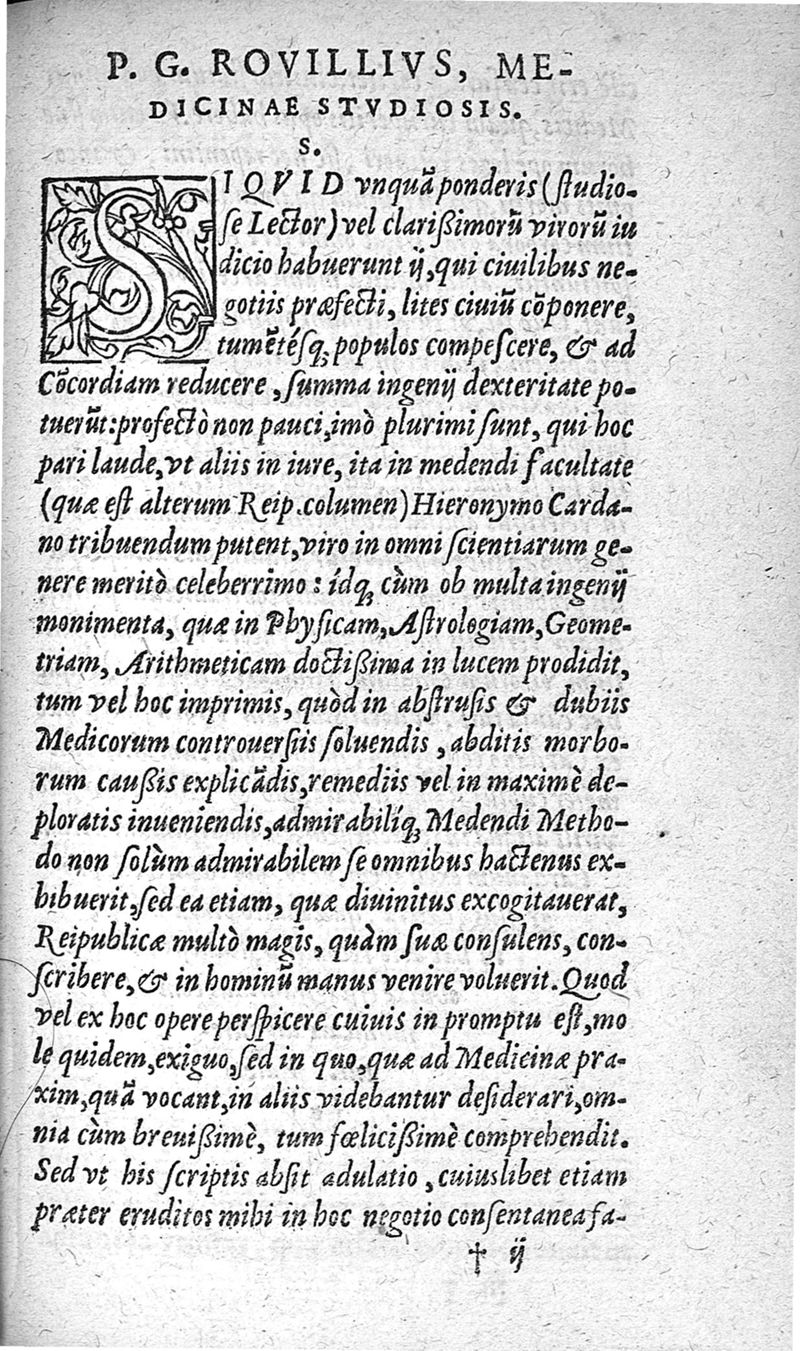 P. G. ROVILLIVS, ME-
DICINAE STVDIOSIS.
S.
SIQVID vnquã ponderis (ſtudio-
ſe Lector) vel clarißimorũ virorũ iu
dicio habuerunt ij, qui ciuilibus ne-
gotiis præfecti, lites ciuiũ cõponere,
tumẽtéſq; populos compeſcere, & ad
Cõcordiam reducere, ſumma ingenij dexteritate po-
tuerũt: profectò non pauci, imò plurimi ſunt, qui hoc
pari laude, vt aliis in iure, ita in medendi facultate
(quæ eſt alterum Reip. columen) Hieronymo Carda-
no tribuendum putent, viro in omni ſcientiarum ge-
nere meritò celeberrimo: ídq; cùm ob multa ingenij
monimenta, quæ in Phyſicam, Aſtrologiam, Geome-
triam, Arithmeticam doctißima in lucem prodidit,
tum vel hoc imprimis, quòd in abſtruſis & dubiis
Medicorum controuerſiis ſoluendis, abditis morbo-
rum caußis explicãdis, remediis vel in maximè de-
ploratis inueniendis, admirabilíq; Medendi Metho-
do non ſolùm admirabilem ſe omnibus hactenus ex-
hibuerit, ſed ea etiam, quæ diuinitus excogitauerat,
Reipublicæ multò magis, quàm ſuæ conſulens, con-
ſcribere, & in hominũ manus venire voluerit. Quod
vel ex hoc opere perſpicere cuiuis in promptu eſt, mo
le quidem, exiguo, ſed in quo, quæ ad Medicinæ pra-
xim, quã vocant, in aliis videbantur deſiderari, om-
nia cùm breuißimè, tum fœlicißimè comprehendit.
Sed vt his ſcriptis abſit adulatio, cuiuslibet etiam
præter eruditos mihi in hoc negotio conſentanea fa-
† ij